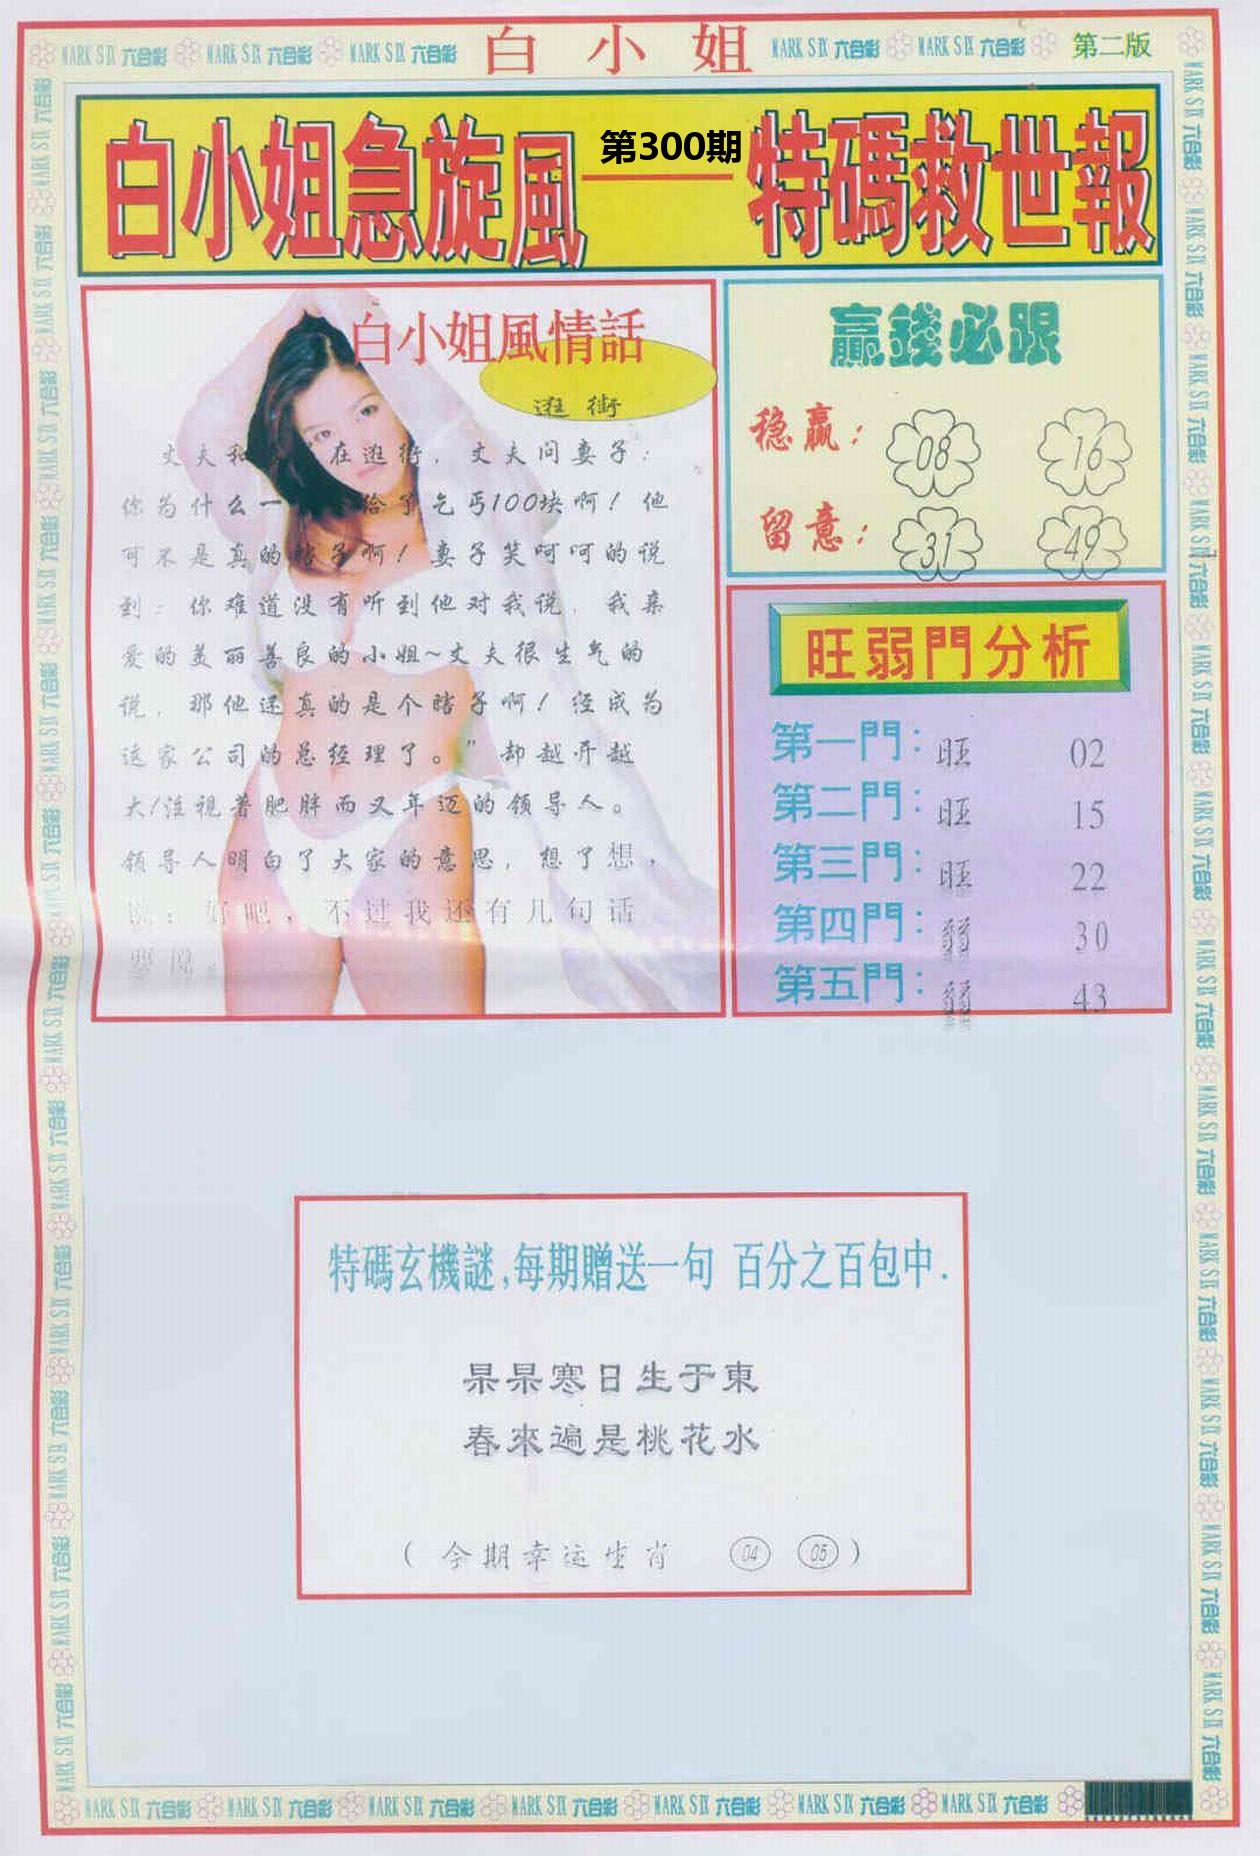 MARK SIX 六合彩 MARK SIX 六合彩 MARK SIX 六合彩 白小姐 MARK SIX 六合彩 MARK SIX 六合彩 第二版
白小姐急旋風——特碼救世報
第300期
白小姐風情話
逛街
丈夫和 在逛街，丈夫问妻子：
你为什么一 给了乞丐100块啊！他
可不是真的瞎子啊！妻子笑呵呵的说
到：你难道没有听到他对我说，我亲
爱的美丽善良的小姐~丈夫很生气的
说，那他还真的是个瞎子啊！经成为
这家公司的总经理了。”却越开越
大/注视着肥胖而又年迈的领导人。
领导人明白了大家的意思，想了想，
说：好吧，不过我还有几句话
贏錢必跟
稳贏：08 16
留意：31 49
旺弱門分析
第一門：旺 02
第二門：旺 15
第三門：旺 22
第四門：弱 30
第五門：弱 43
特碼玄機謎,每期贈送一句 百分之百包中.
杲杲寒日生于東
春來遍是桃花水
（今期幸运生肖 04 05）
MARK SIX 六合彩 MARK SIX 六合彩 MARK SIX 六合彩 MARK SIX 六合彩 MARK SIX 六合彩 MARK SIX 六合彩 MARK SIX 六合彩